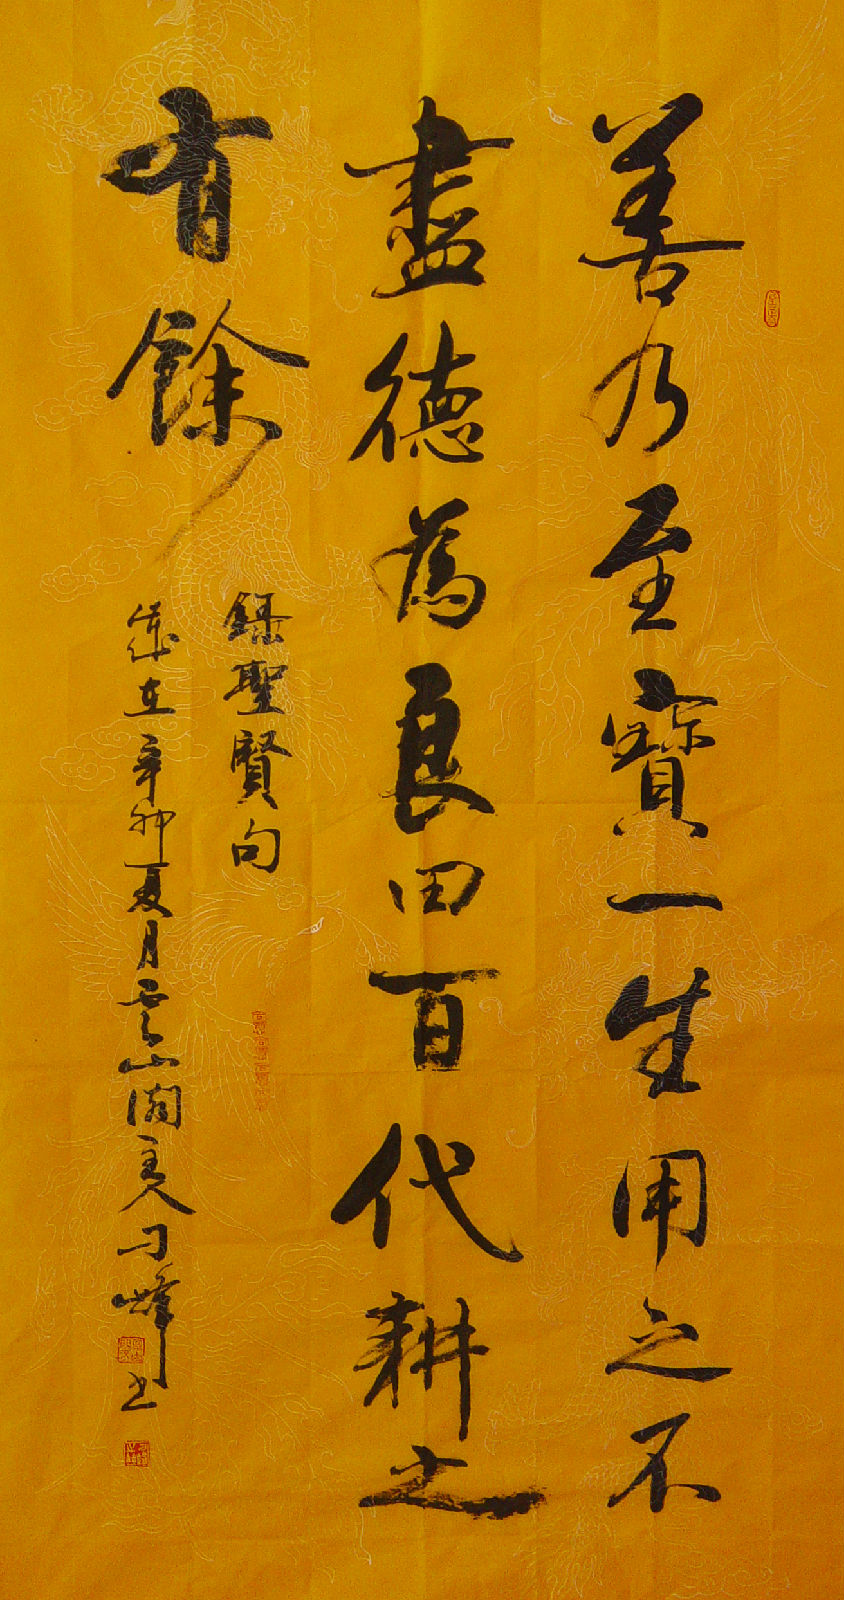 善乃至寶一生用之不
盡德為良田百代耕之
有餘
錄聖賢句
歲在辛卯夏月雲山閣主人刁峰书